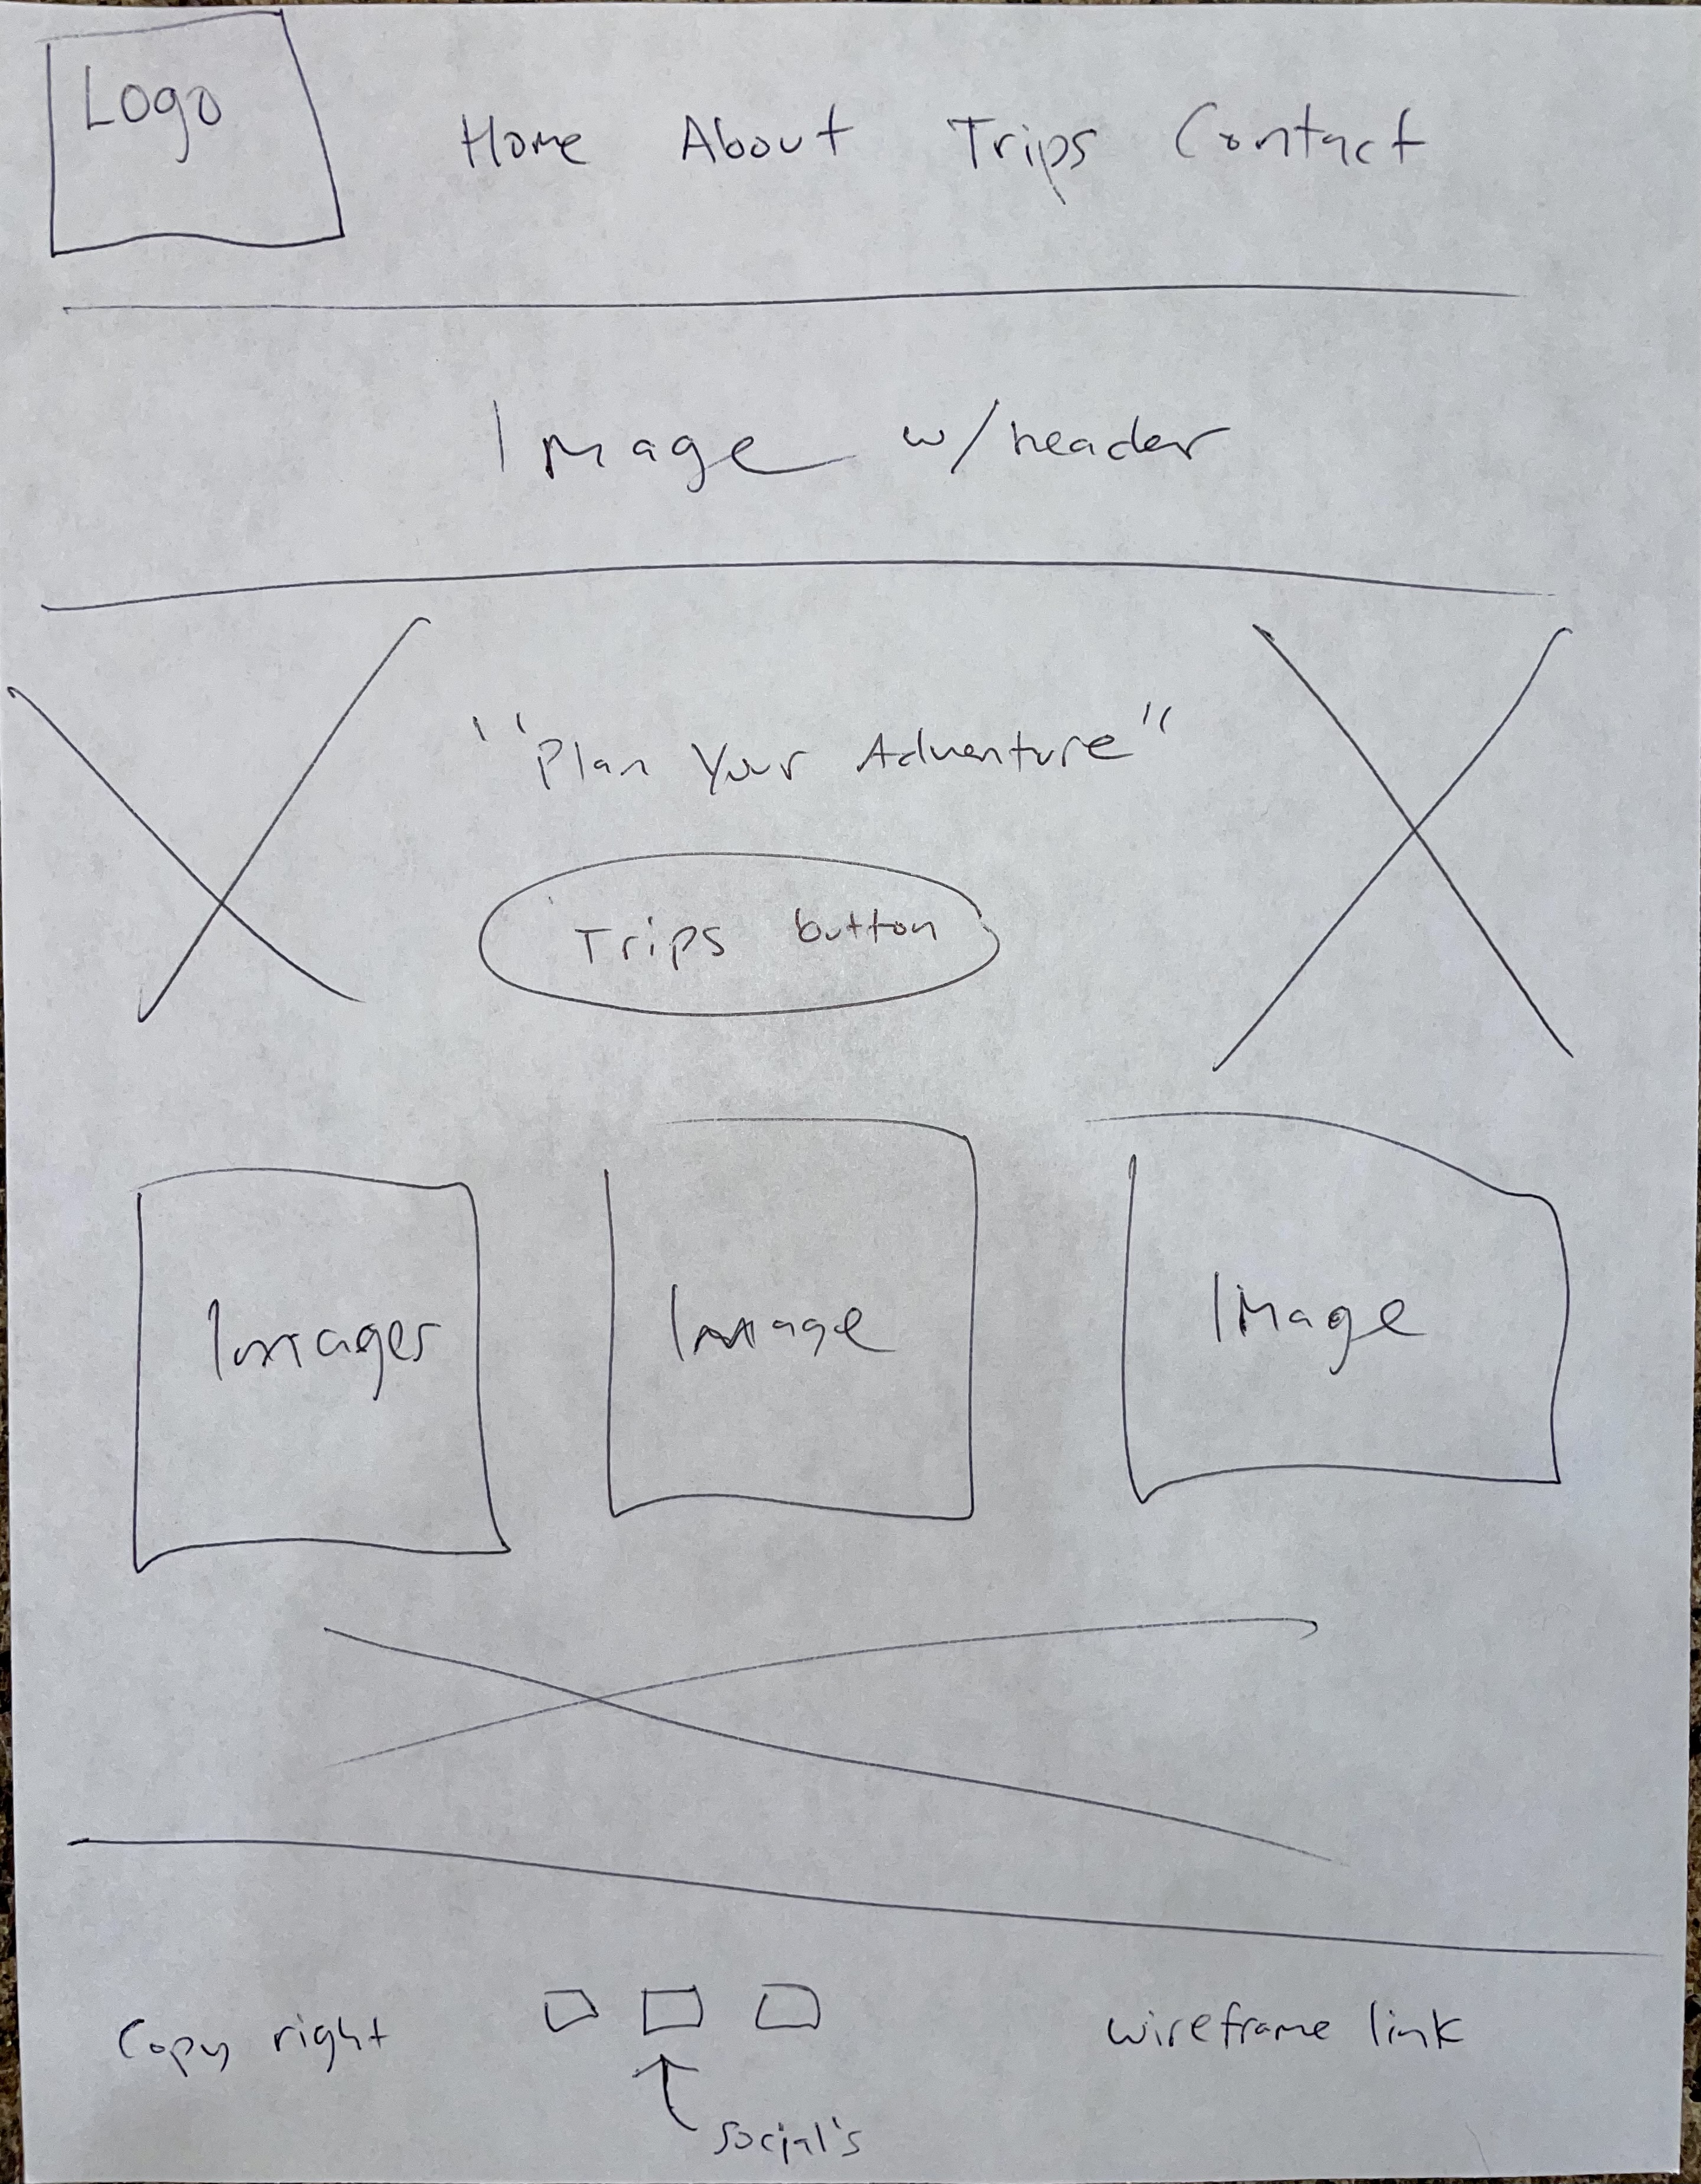 Logo
Home About Trips Contact
Image w/header
"Plan Your Adventure"
Trips button
Images Image Image
Copy right wireframe link
social's